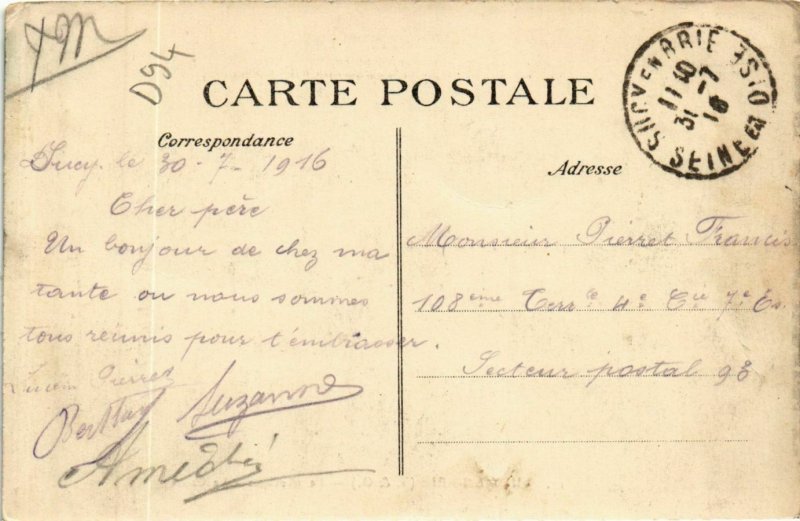 FM
D94
CARTE POSTALE
Correspondance
Adresse
SUCY EN BRIE
SEINE ET OISE
11 15
31 -7
16
Sucy le 30-7-1916
Cher père
Un bonjour de chez ma
tante ou nous sommes
tous réunis pour t'embrasser.
Lucien Pierret
Berthe
Suzanne
Amédée
Monsieur Pierret Francis
108ème Terr le 4e Cie 7e Es.
Secteur postal 98